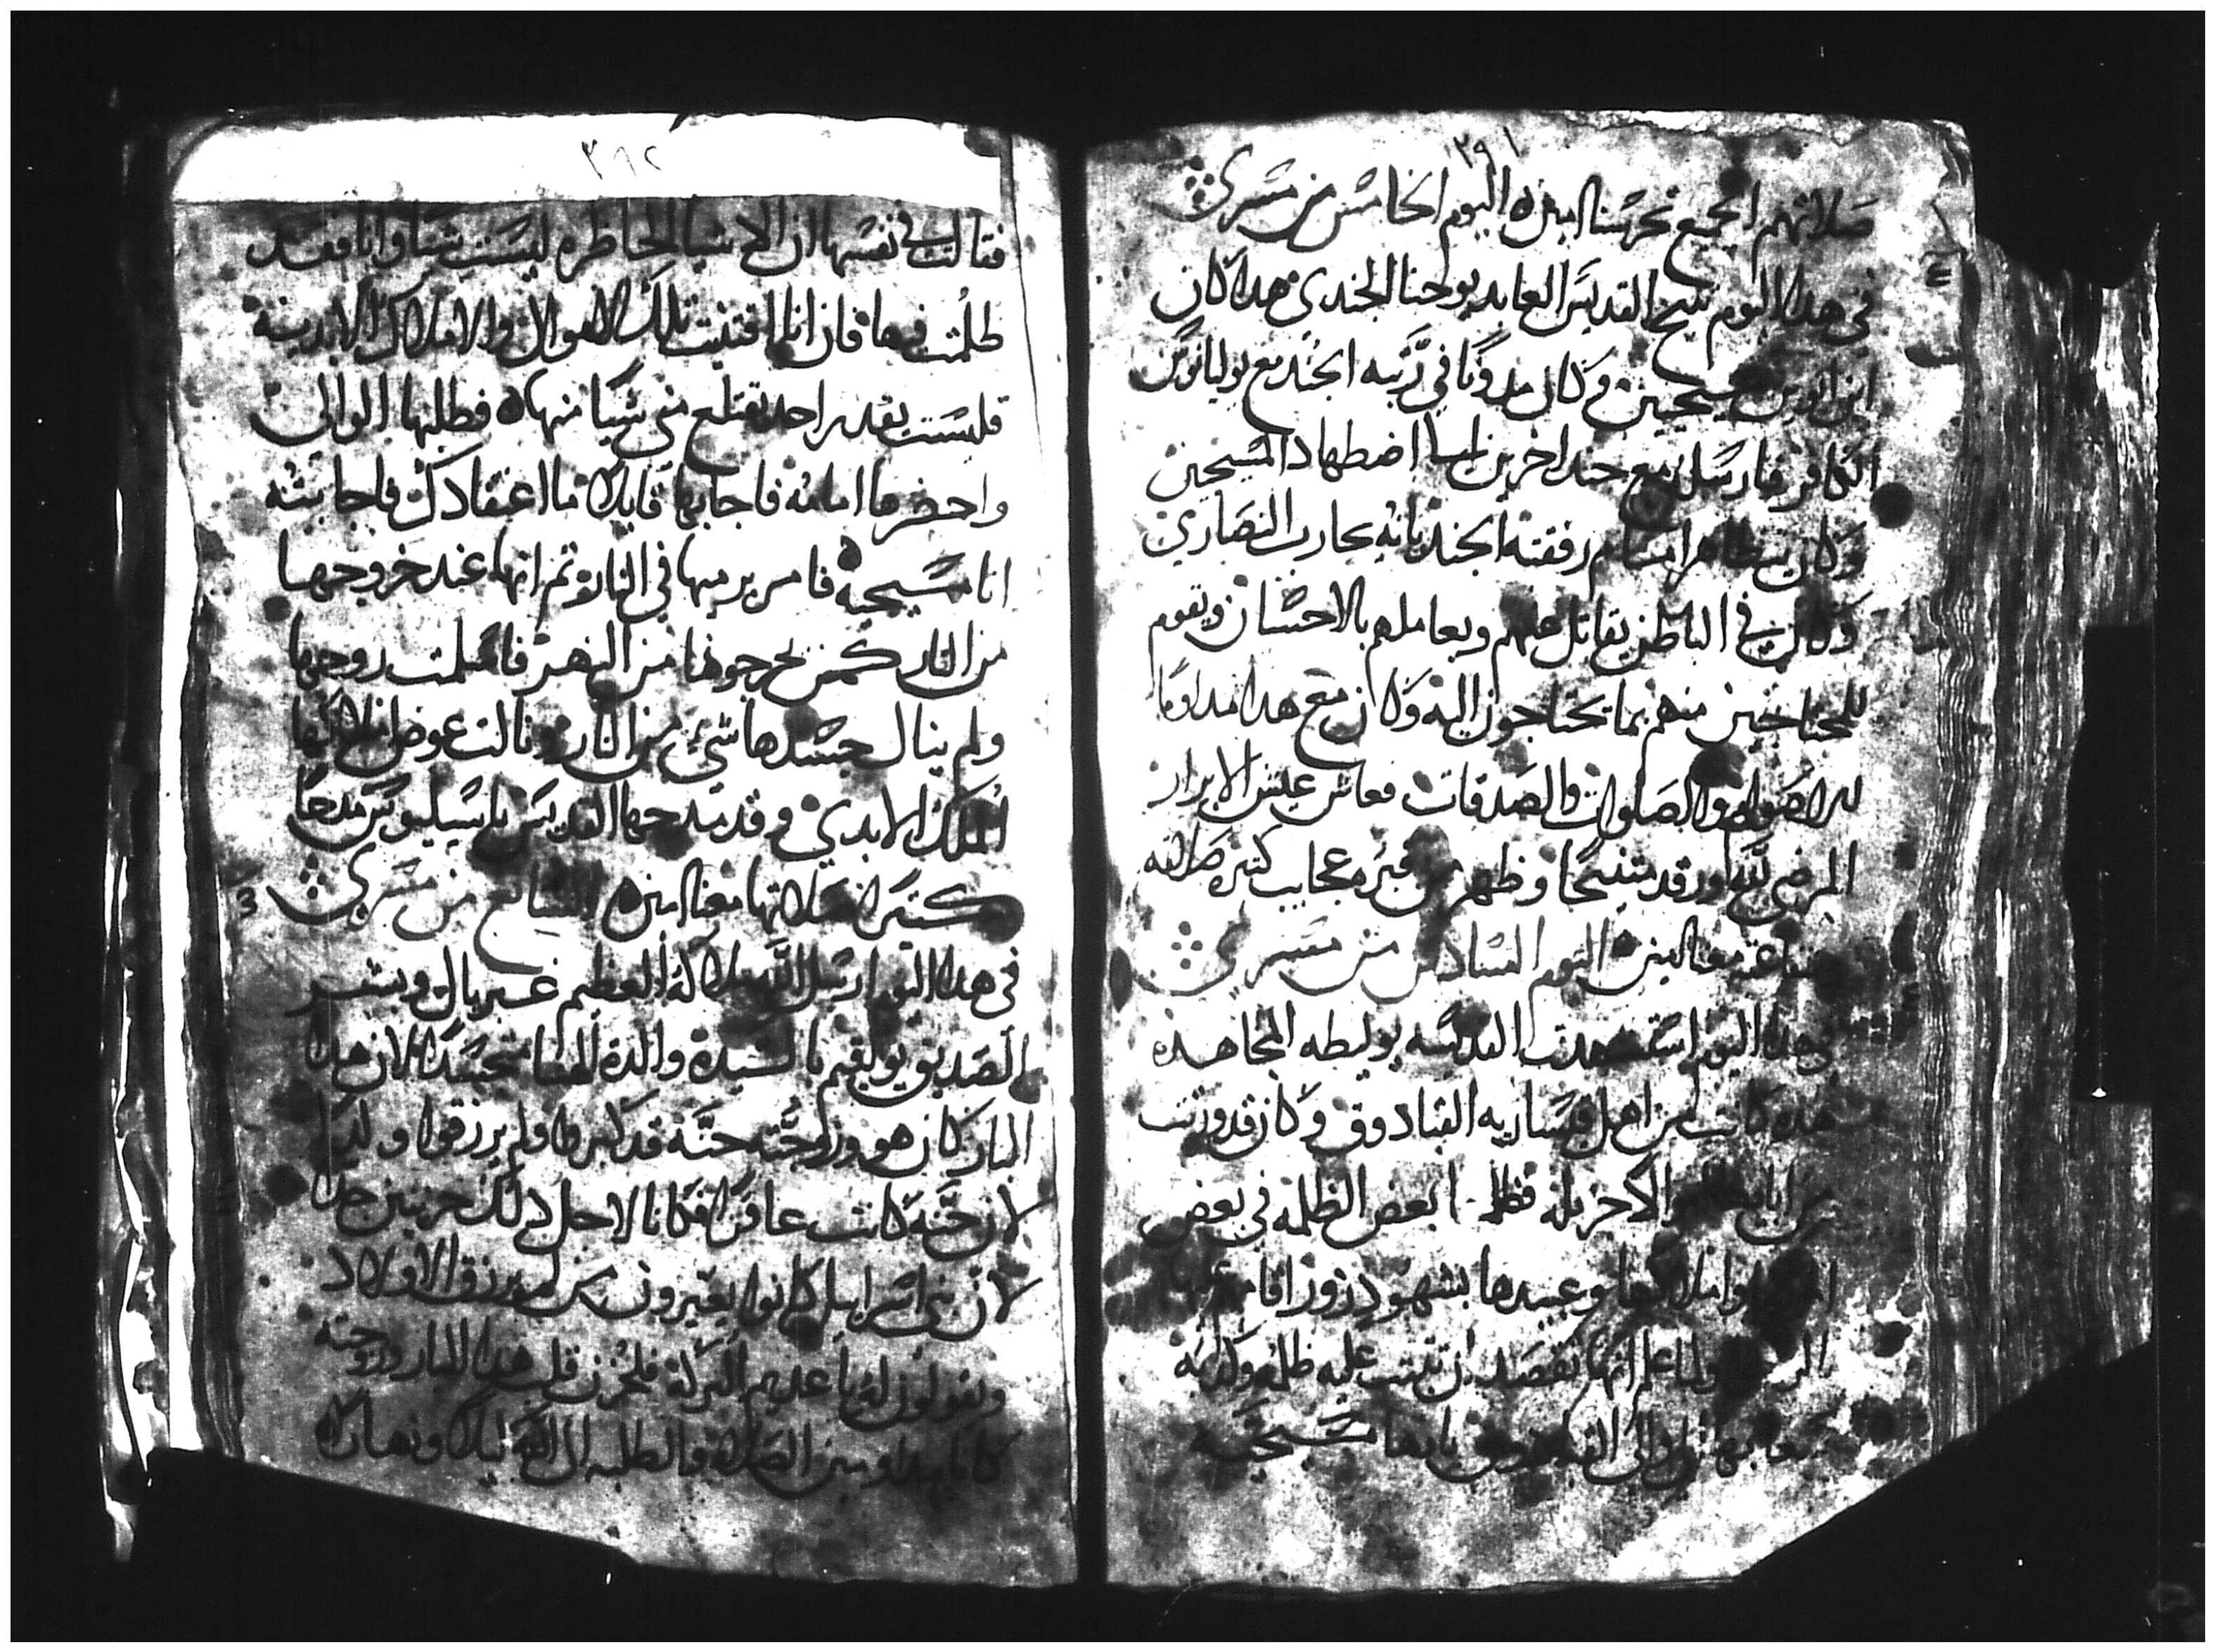 ٣٩١
صلاتهم الجميع تحرسنا امين اليوم الخامس من مسري
في هدا اليوم تنيح القديس العابد يوحنا الجندي هدا كان
ابن ابوين مسيحيين وكان مدونًا في رتبه الجند مع يوليانوس
الكافر فارسل مع جند اخرين الي اضطهاد المسيحين
وكان يتظاهر امام رفقته الجند بانه يحارب النصاري
وكان في الباطن يقاتل عنهم ويعاملهم بالاحسان ويقوم
للمحتاجين منهم بما يحتاجون اليه وكان مع هدا مداومًا
للاصوام والصلوات والصدقات فعاش عيش الابرار
المرضي لله ورقد متنيحًا وظهر من قبره عجايب كتيره صلاته
وشفاعته معنا امين اليوم السادس من مسري
في هدا اليوم استشهدت القديسه يوليطه المجاهده
هده كانت من اهل قيساريه القبادوق وكان قد ورتت
من اباها الاكتر مله فظلمها بعض الظلمه في بعض
واملاكها وعبيدها بشهود زور اقامهم
ولما علم انها تقصد ان تتبت عليه ظلمه وكدبه
سعا بها الي والي القبادوق بانها مسيحيه
٣٩٢
فقالت في نفسها ان الاشيا الحاظره ليست شيا وانا فقد
ظلمت فيها فان انا اقتنيت تلك الاموال والاملاك الابدية
فليست يقدر احد يقتلع مني شيا منها فطلبها الوالي
واحضرها امامه فاجابها قايلا ما اعتقادك فاجابته
انا مسيحيه فامر برميها في النار ثم انها عند خروجها
من النار كمن يخرجونها من النهر فاسلمت روحها
ولم ينال جسدها شي من النار ونالت عوض املاكها
الملك الابدي وقد مدحها القديس باسيليوس مدحًا
كتيرًا صلاتها معنا امين السابع من مسري
في هدا اليوم ارسل الله ملاكه العظيم غبريال وبشر
الصديق يواقيم بالسيدة والدة الهنا متجسدًا لان هدا
البار كان هو وزوجته حنة قد كبروا ولم يرزقوا ولد
لان حنة كانت عاقرًا فكانا لاجل دلك حزينين جدا
لان بني اسراييل كانوا يعيرون من لم يرزق الاولاد
ويقولون له يا عديم البركة فلحزن قلب هدا البار وزوجته
كانا مداومين الصلاة والطلبه الي الله ليلا ونهارًا